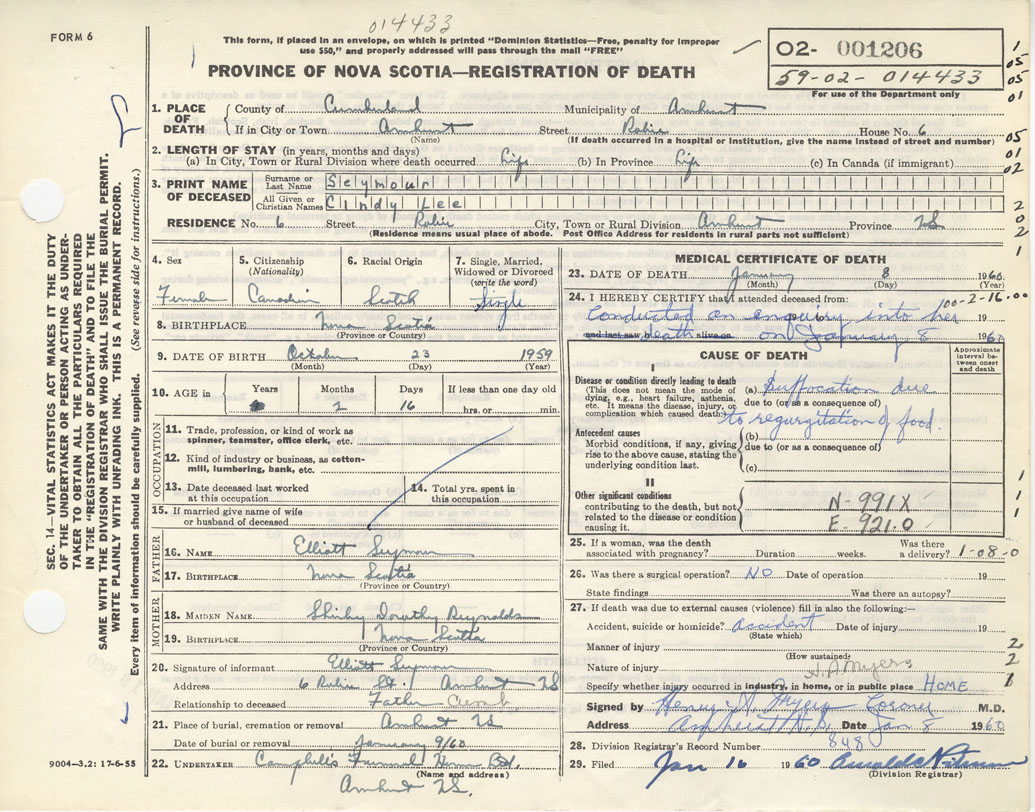 014433
FORM 6
This form, if placed in an envelope, on which is printed "Dominion Statistics—Free, penalty for improper
use $50," and properly addressed will pass through the mail "FREE"
O2- 001206
59-02-014433
For use of the Department only
PROVINCE OF NOVA SCOTIA—REGISTRATION OF DEATH
1
05
05
01
1. PLACE OF DEATH
County of Cumberland Municipality of Amherst
If in City or Town Amherst Street Robie House No. 6
(Name) (If death occurred in a hospital or institution, give the name instead of street and number)
05
01
02
2. LENGTH OF STAY (in years, months and days)
(a) In City, Town or Rural Division where death occurred Life (b) In Province Life (c) In Canada (if immigrant)
3. PRINT NAME OF DECEASED
Surname or Last Name Seymour
All Given or Christian Names Cindy Lee
RESIDENCE No. 6 Street Robie City, Town or Rural Division Amherst Province NS
(Residence means usual place of abode. Post Office Address for residents in rural parts not sufficient)
2
0
2
1
4. Sex
Female
5. Citizenship
(Nationality)
Canadian
6. Racial Origin
Scotch
7. Single, Married,
Widowed or Divorced
(write the word)
Single
8. BIRTHPLACE Nova Scotia
(Province or Country)
9. DATE OF BIRTH October 23 1959
(Month) (Day) (Year)
10. AGE in
Years Months Days If less than one day old
2 16 hrs. or min.
OCCUPATION
11. Trade, profession, or kind of work as
spinner, teamster, office clerk, etc.
12. Kind of industry or business, as cotton-
mill, lumbering, bank, etc.
13. Date deceased last worked
at this occupation
14. Total yrs. spent in
this occupation
15. If married give name of wife
or husband of deceased
FATHER
16. NAME Elliott Seymour
17. BIRTHPLACE Nova Scotia
(Province or Country)
MOTHER
18. MAIDEN NAME Shirley Dorothy Reynolds
19. BIRTHPLACE Nova Scotia
(Province or Country)
20. Signature of informant Elliott Seymour
Address 6 Robie St. Amherst NS
Relationship to deceased Father Cumb
21. Place of burial, cremation or removal Amherst NS
Date of burial or removal January 9/60
22. UNDERTAKER Campbell's Funeral Home
(Name and address)
Amherst NS.
MEDICAL CERTIFICATE OF DEATH
23. DATE OF DEATH January 8 1960
(Month) (Day) (Year)
24. I HEREBY CERTIFY that I attended deceased from:
100-2-16-00
conducted an enquiry into her 19
and last saw h alive on death on January 8 1960
CAUSE OF DEATH
Approximate
interval be-
tween onset
and death
I
Disease or condition directly leading to death
(This does not mean the mode of
dying, e.g., heart failure, asthenia,
etc. It means the disease, injury, or
complication which caused death)
(a) Suffocation due
due to (or as a consequence of)
to regurgitation of food.
Antecedent causes
Morbid conditions, if any, giving
rise to the above cause, stating the
underlying condition last.
(b)
due to (or as a consequence of)
(c)
II
Other significant conditions
contributing to the death, but not
related to the disease or condition
causing it.
N-991X
E-921.0
1
1
1
25. If a woman, was the death
associated with pregnancy? Duration weeks. Was there
a delivery? 1-08-0
26. Was there a surgical operation? NO Date of operation 19
State findings Was there an autopsy?
27. If death was due to external causes (violence) fill in also the following:—
Accident, suicide or homicide? accident Date of injury 19
(State which)
Manner of injury 2
(How sustained)
Nature of injury H.A. Myers 2
Specify whether injury occurred in industry, in home, or in public place HOME
Signed by Henry A. Myers Coroner M.D.
Address Amherst N.S. Date Jan 8 1960
28. Division Registrar's Record Number 848
29. Filed Jan 16 1960
(Division Registrar)
SEC. 14—VITAL STATISTICS ACT MAKES IT THE DUTY
OF THE UNDERTAKER OR PERSON ACTING AS UNDER-
TAKER TO OBTAIN ALL THE PARTICULARS REQUIRED
IN THE "REGISTRATION OF DEATH" AND TO FILE THE
SAME WITH THE DIVISION REGISTRAR WHO SHALL ISSUE THE BURIAL PERMIT.
WRITE PLAINLY WITH UNFADING INK. THIS IS A PERMANENT RECORD.
Every item of information should be carefully supplied. (See reverse side for instructions.)
9004—3.2: 17-6-55